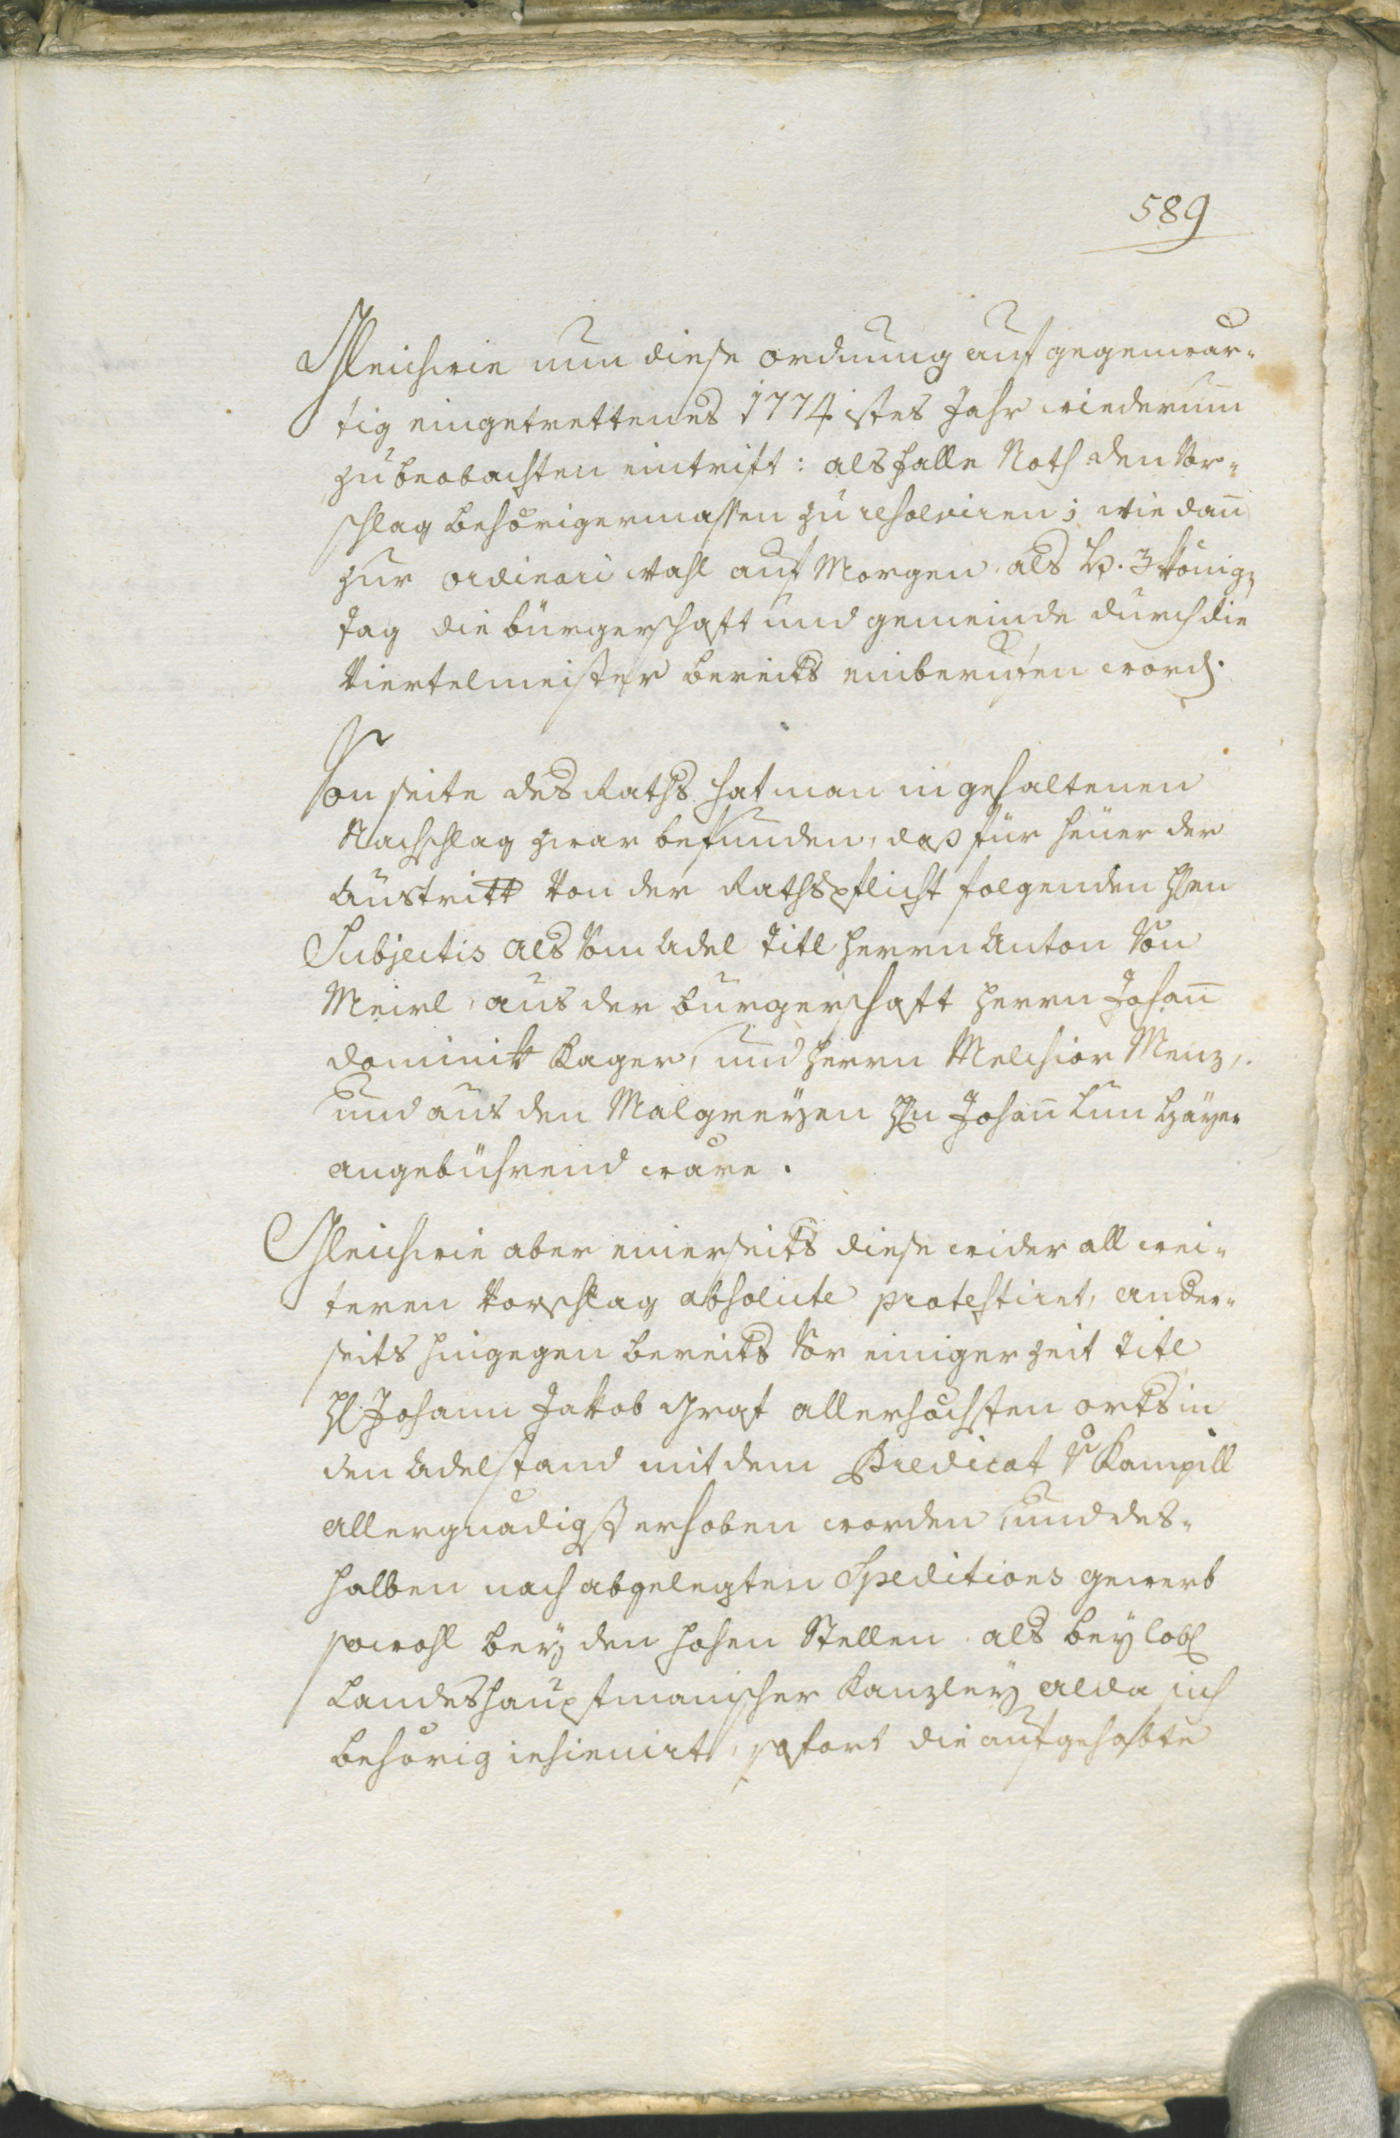 589
Gleichwie nun diese ordnung auf gegenwär-
tig eingetrettenes 1774istes Jahr wiederum
zu beobachten eintrift: als falle Noth den Vor-
schlag behörigermassen zu resolviren; wie dan̄
zur ordinari wahl auf Morgen als H. 3 König
tag die bürgerschaft und gemeinde durch die
Viertelmeister bereits einberufen word.
Von seite des Raths hat man in gehaltenen
Nachschlag zwar befunden, daß für heüer der
Austritt von der Rathspflicht folgenden Hen
Subjectis als Vom Adel Titl herrn Anton Von
Meirl, aus der burgerschaft herrn Johan̄
Dominik Kager, und herrn Melchior Menz,
und aus den Malgreyen Hn Johan̄ Lun
angebührend ware.
Gleichwie aber einerseits diese wider all wei-
teren Vorschlag absolute protestiret, ander-
seits hingegen bereits Vor einiger zeit Titl
H Johann Jakob Graf allerhöchsten orts in
den Adelstand mit dem Predicat V Kampill
allergnädigst erhoben worden, und des-
halben nach abgelegten Speditions gewerb
sowohl bey den hohen Stellen als bey lobl
Landeshauptmanischer Kanzley alda sich
behörig insinuirt, sofort die aufgehabte